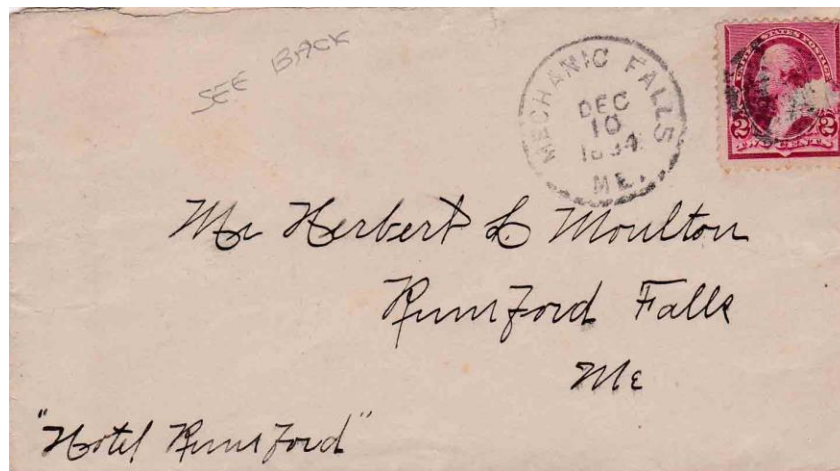 SEE BACK
MECHANIC FALLS
DEC
10
1894
ME.
UNITED STATES POSTAGE
2 2
TWO CENTS
Mr Herbert L Moulton
Rumford Falls
Me
"Hotel Rumford"